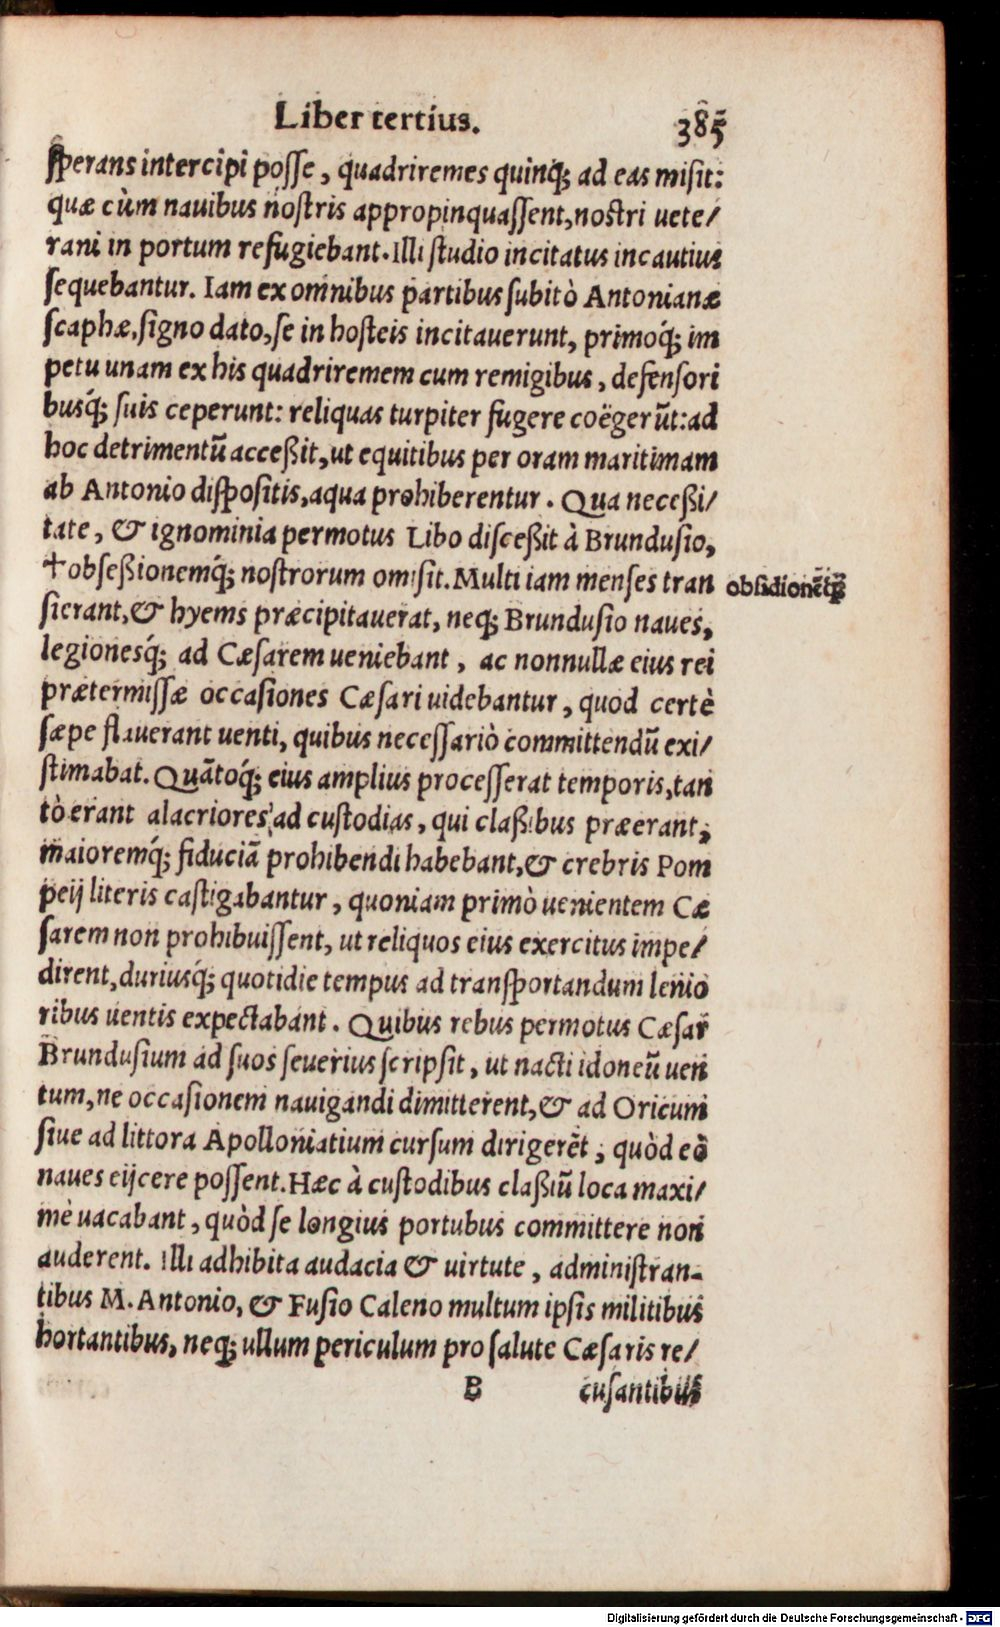 Liber tertius. 385
sperans intercipi posse, quadriremes quinq; ad eas misit:
quæ cùm nauibus nostris appropinquassent, nostri uete/
rani in portum refugiebant. Illi studio incitatus incautius
sequebantur. Iam ex omnibus partibus subitò Antonianæ
scaphæ, signo dato, se in hosteis incitauerunt, primoq́; im
petu unam ex his quadriremem cum remigibus, defensori
busq́; suis ceperunt: reliquas turpiter fugere coëgerũt: ad
hoc detrimentũ acceßit, ut equitibus per oram maritimam
ab Antonio dispositis, aqua prohiberentur. Qua neceßi/
tate, & ignominia permotus Libo disceßit à Brundusio,
✝obseßionemq́; nostrorum omisit. Multi iam menses tran
obsidionẽq́;
sierant, & hyems præcipitauerat, neq; Brundusio naues,
legionesq́; ad Cæsarem ueniebant, ac nonnullæ eius rei
prætermissæ occasiones Cæsari uidebantur, quod certè
sæpe flauerant uenti, quibus necessariò committendũ exi/
stimabat. Quãtoq́; eius amplius processerat temporis, tan
tò erant alacriores ad custodias, qui claßibus præerant,
maioremq́; fiduciã prohibendi habebant, & crebris Pom
peij literis castigabantur, quoniam primò uenientem Cæ
sarem non prohibuissent, ut reliquos eius exercitus impe/
dirent, duriusq́; quotidie tempus ad transportandum lenio
ribus uentis expectabant. Quibus rebus permotus Cæsar
Brundusium ad suos seuerius scripsit, ut nacti idoneũ uen
tum, ne occasionem nauigandi dimitterent, & ad Oricum
siue ad littora Apolloniatium cursum dirigerẽt, quòd eò
naues eijcere possent. Hæc à custodibus claßiũ loca maxi/
mè uacabant, quòd se longius portubus committere non
auderent. Illi adhibita audacia & uirtute, administran-
tibus M. Antonio, & Fusio Caleno multum ipsis militibus
hortantibus, neq; ullum periculum pro salute Cæsaris re/
B cusantibus
Digitalisierung gefördert durch die Deutsche Forschungsgemeinschaft - DFG